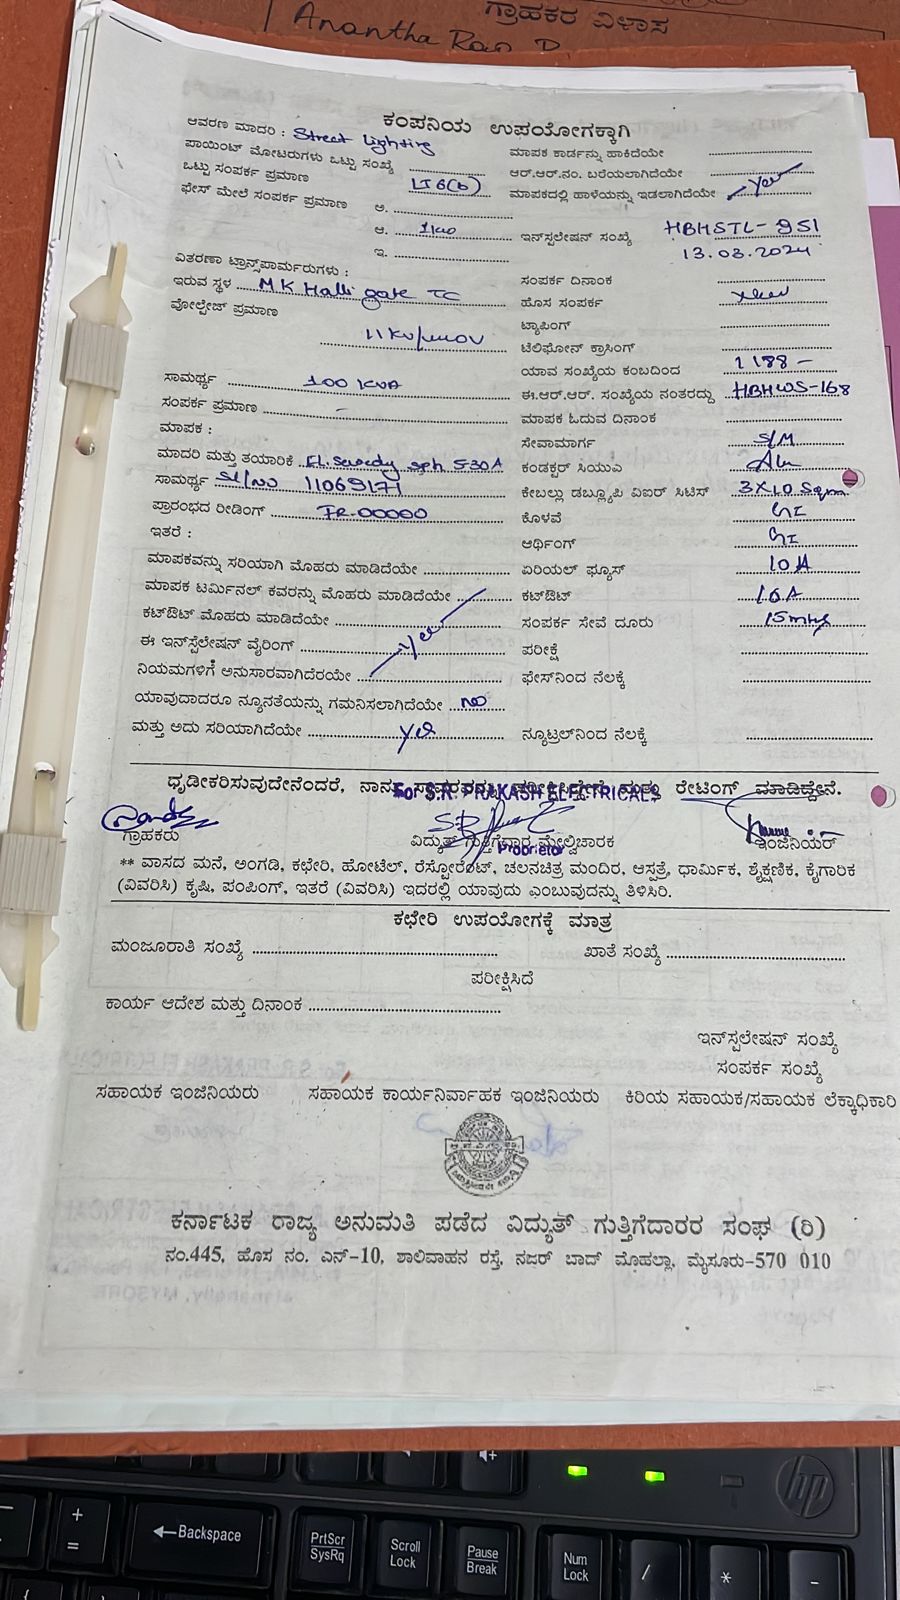 ಗ್ರಾಹಕರ ವಿಳಾಸ
Anantha Rao P
ಕಂಪನಿಯ ಉಪಯೋಗಕ್ಕಾಗಿ
ಆವರಣ ಮಾದರಿ : Street Lighting
ಮಾಪಕ ಕಾರ್ಡನ್ನು ಹಾಕಿದೆಯೇ
ಪಾಯಿಂಟ್ ಮೋಟರುಗಳು ಒಟ್ಟು ಸಂಖ್ಯೆ
ಆರ್.ಆರ್.ನಂ. ಬರೆಯಲಾಗಿದೆಯೇ
ಒಟ್ಟು ಸಂಪರ್ಕ ಪ್ರಮಾಣ LT6(b)
ಮಾಪಕದಲ್ಲಿ ಹಾಳೆಯನ್ನು ಇಡಲಾಗಿದೆಯೇ Yes
ಫೇಸ್ ಮೇಲೆ ಸಂಪರ್ಕ ಪ್ರಮಾಣ ಅ.
ಆ. 1kw
ಇನ್‌ಸ್ಪಲೇಷನ್ ಸಂಖ್ಯೆ HBHSTL-951
ಇ.
13.03.2024
ವಿತರಣಾ ಟ್ರಾನ್ಸ್‌ಪಾರ್ಮರುಗಳು :
ಸಂಪರ್ಕ ದಿನಾಂಕ
ಇರುವ ಸ್ಥಳ MK Halli gate TC
ಹೊಸ ಸಂಪರ್ಕ
ವೋಲ್ಟೇಜ್ ಪ್ರಮಾಣ 11KV/440V
ಟ್ಯಾಪಿಂಗ್
ಟೆಲಿಫೋನ್ ಕ್ರಾಸಿಂಗ್
ಯಾವ ಸಂಖ್ಯೆಯ ಕಂಬದಿಂದ
ಸಾಮರ್ಥ್ಯ 100 KVA
ಈ.ಆರ್.ಆರ್. ಸಂಖ್ಯೆಯ ನಂತರದ್ದು HBHWS-168
ಸಂಪರ್ಕ ಪ್ರಮಾಣ -
ಮಾಪಕ ಓದುವ ದಿನಾಂಕ
ಮಾಪಕ :
ಸೇವಾಮಾರ್ಗ S/M
ಮಾದರಿ ಮತ್ತು ತಯಾರಿಕೆ sph 5-30A
ಕಂಡಕ್ಟರ್ ಸಿಯುಎ
ಸಾಮರ್ಥ್ಯ Sl/No 11069171
ಕೇಬಲ್ಲು ಡಬ್ಲ್ಯೂಪಿ ವಿಐರ್ ಸಿಟಿಸ್ 3X10 Sqmm
ಪ್ರಾರಂಭದ ರೀಡಿಂಗ್ IR-00000
ಕೊಳವೆ GI
ಇತರೆ :
ಅರ್ಥಿಂಗ್ GI
ಮಾಪಕವನ್ನು ಸರಿಯಾಗಿ ಮೊಹರು ಮಾಡಿದೆಯೇ
ಏರಿಯಲ್ ಫ್ಯೂಸ್ 10A
ಮಾಪಕ ಟರ್ಮಿನಲ್ ಕವರನ್ನು ಮೊಹರು ಮಾಡಿದೆಯೇ
ಕಟ್‌ಔಟ್ 16A
ಕಟ್‌ಔಟ್ ಮೊಹರು ಮಾಡಿದೆಯೇ
ಸಂಪರ್ಕ ಸೇವೆ ದೂರು 15mtrs
ಈ ಇನ್‌ಸ್ಪೆಲೇಷನ್ ವೈರಿಂಗ್ Yes
ಪರೀಕ್ಷೆ
ನಿಯಮಗಳಿಗೆ ಅನುಸಾರವಾಗಿದೆರಯೇ
ಫೇಸ್‌ನಿಂದ ನೆಲಕ್ಕೆ
ಯಾವುದಾದರೂ ನ್ಯೂನತೆಯನ್ನು ಗಮನಿಸಲಾಗಿದೆಯೇ No
ಮತ್ತು ಅದು ಸರಿಯಾಗಿದೆಯೇ Yes
ನ್ಯೂಟ್ರಲ್‌ನಿಂದ ನೆಲಕ್ಕೆ
ಧೃಡೀಕರಿಸುವುದೇನೆಂದರೆ, ನಾನು ರೇಟಿಂಗ್ ಮಾಡಿದ್ದೇನೆ.
For S.R. PRAKASH ELECTRICALS
ಗ್ರಾಹಕರು
ವಿದ್ಯುತ್ ಗುತ್ತಿಗೆದಾರ ಮೇಲ್ವಿಚಾರಕ
ಇಂಜಿನಿಯರ್
Proprietor
** ವಾಸದ ಮನೆ, ಅಂಗಡಿ, ಕಛೇರಿ, ಹೋಟೆಲ್, ರೆಸ್ಟೋರೆಂಟ್, ಚಲನಚಿತ್ರ ಮಂದಿರ, ಆಸ್ಪತ್ರೆ, ಧಾರ್ಮಿಕ, ಶೈಕ್ಷಣಿಕ, ಕೈಗಾರಿಕ
(ವಿವರಿಸಿ) ಕೃಷಿ, ಪಂಪಿಂಗ್, ಇತರೆ (ವಿವರಿಸಿ) ಇದರಲ್ಲಿ ಯಾವುದು ಎಂಬುವುದನ್ನು ತಿಳಿಸಿರಿ.
ಕಛೇರಿ ಉಪಯೋಗಕ್ಕೆ ಮಾತ್ರ
ಮಂಜೂರಾತಿ ಸಂಖ್ಯೆ
ಖಾತೆ ಸಂಖ್ಯೆ
ಪರೀಕ್ಷಿಸಿದೆ
ಕಾರ್ಯ ಆದೇಶ ಮತ್ತು ದಿನಾಂಕ
ಇನ್‌ಸ್ಪಲೇಷನ್ ಸಂಖ್ಯೆ
ಸಂಪರ್ಕ ಸಂಖ್ಯೆ
ಸಹಾಯಕ ಇಂಜಿನಿಯರು
ಸಹಾಯಕ ಕಾರ್ಯನಿರ್ವಾಹಕ ಇಂಜಿನಿಯರು
ಕಿರಿಯ ಸಹಾಯಕ/ಸಹಾಯಕ ಲೆಕ್ಕಾಧಿಕಾರಿ
ಕರ್ನಾಟಕ ರಾಜ್ಯ ಅನುಮತಿ ಪಡೆದ ವಿದ್ಯುತ್ ಗುತ್ತಿಗೆದಾರರ ಸಂಘ (ರಿ)
ನಂ.445, ಹೊಸ ನಂ. ಎನ್-10, ಶಾಲಿವಾಹನ ರಸ್ತೆ, ನಜರ್ ಬಾದ್ ಮೊಹಲ್ಲಾ, ಮೈಸೂರು-570 010
+
=
Backspace
PrtScr
SysRq
Scroll
Lock
Pause
Break
Num
Lock
/
*
-
hp